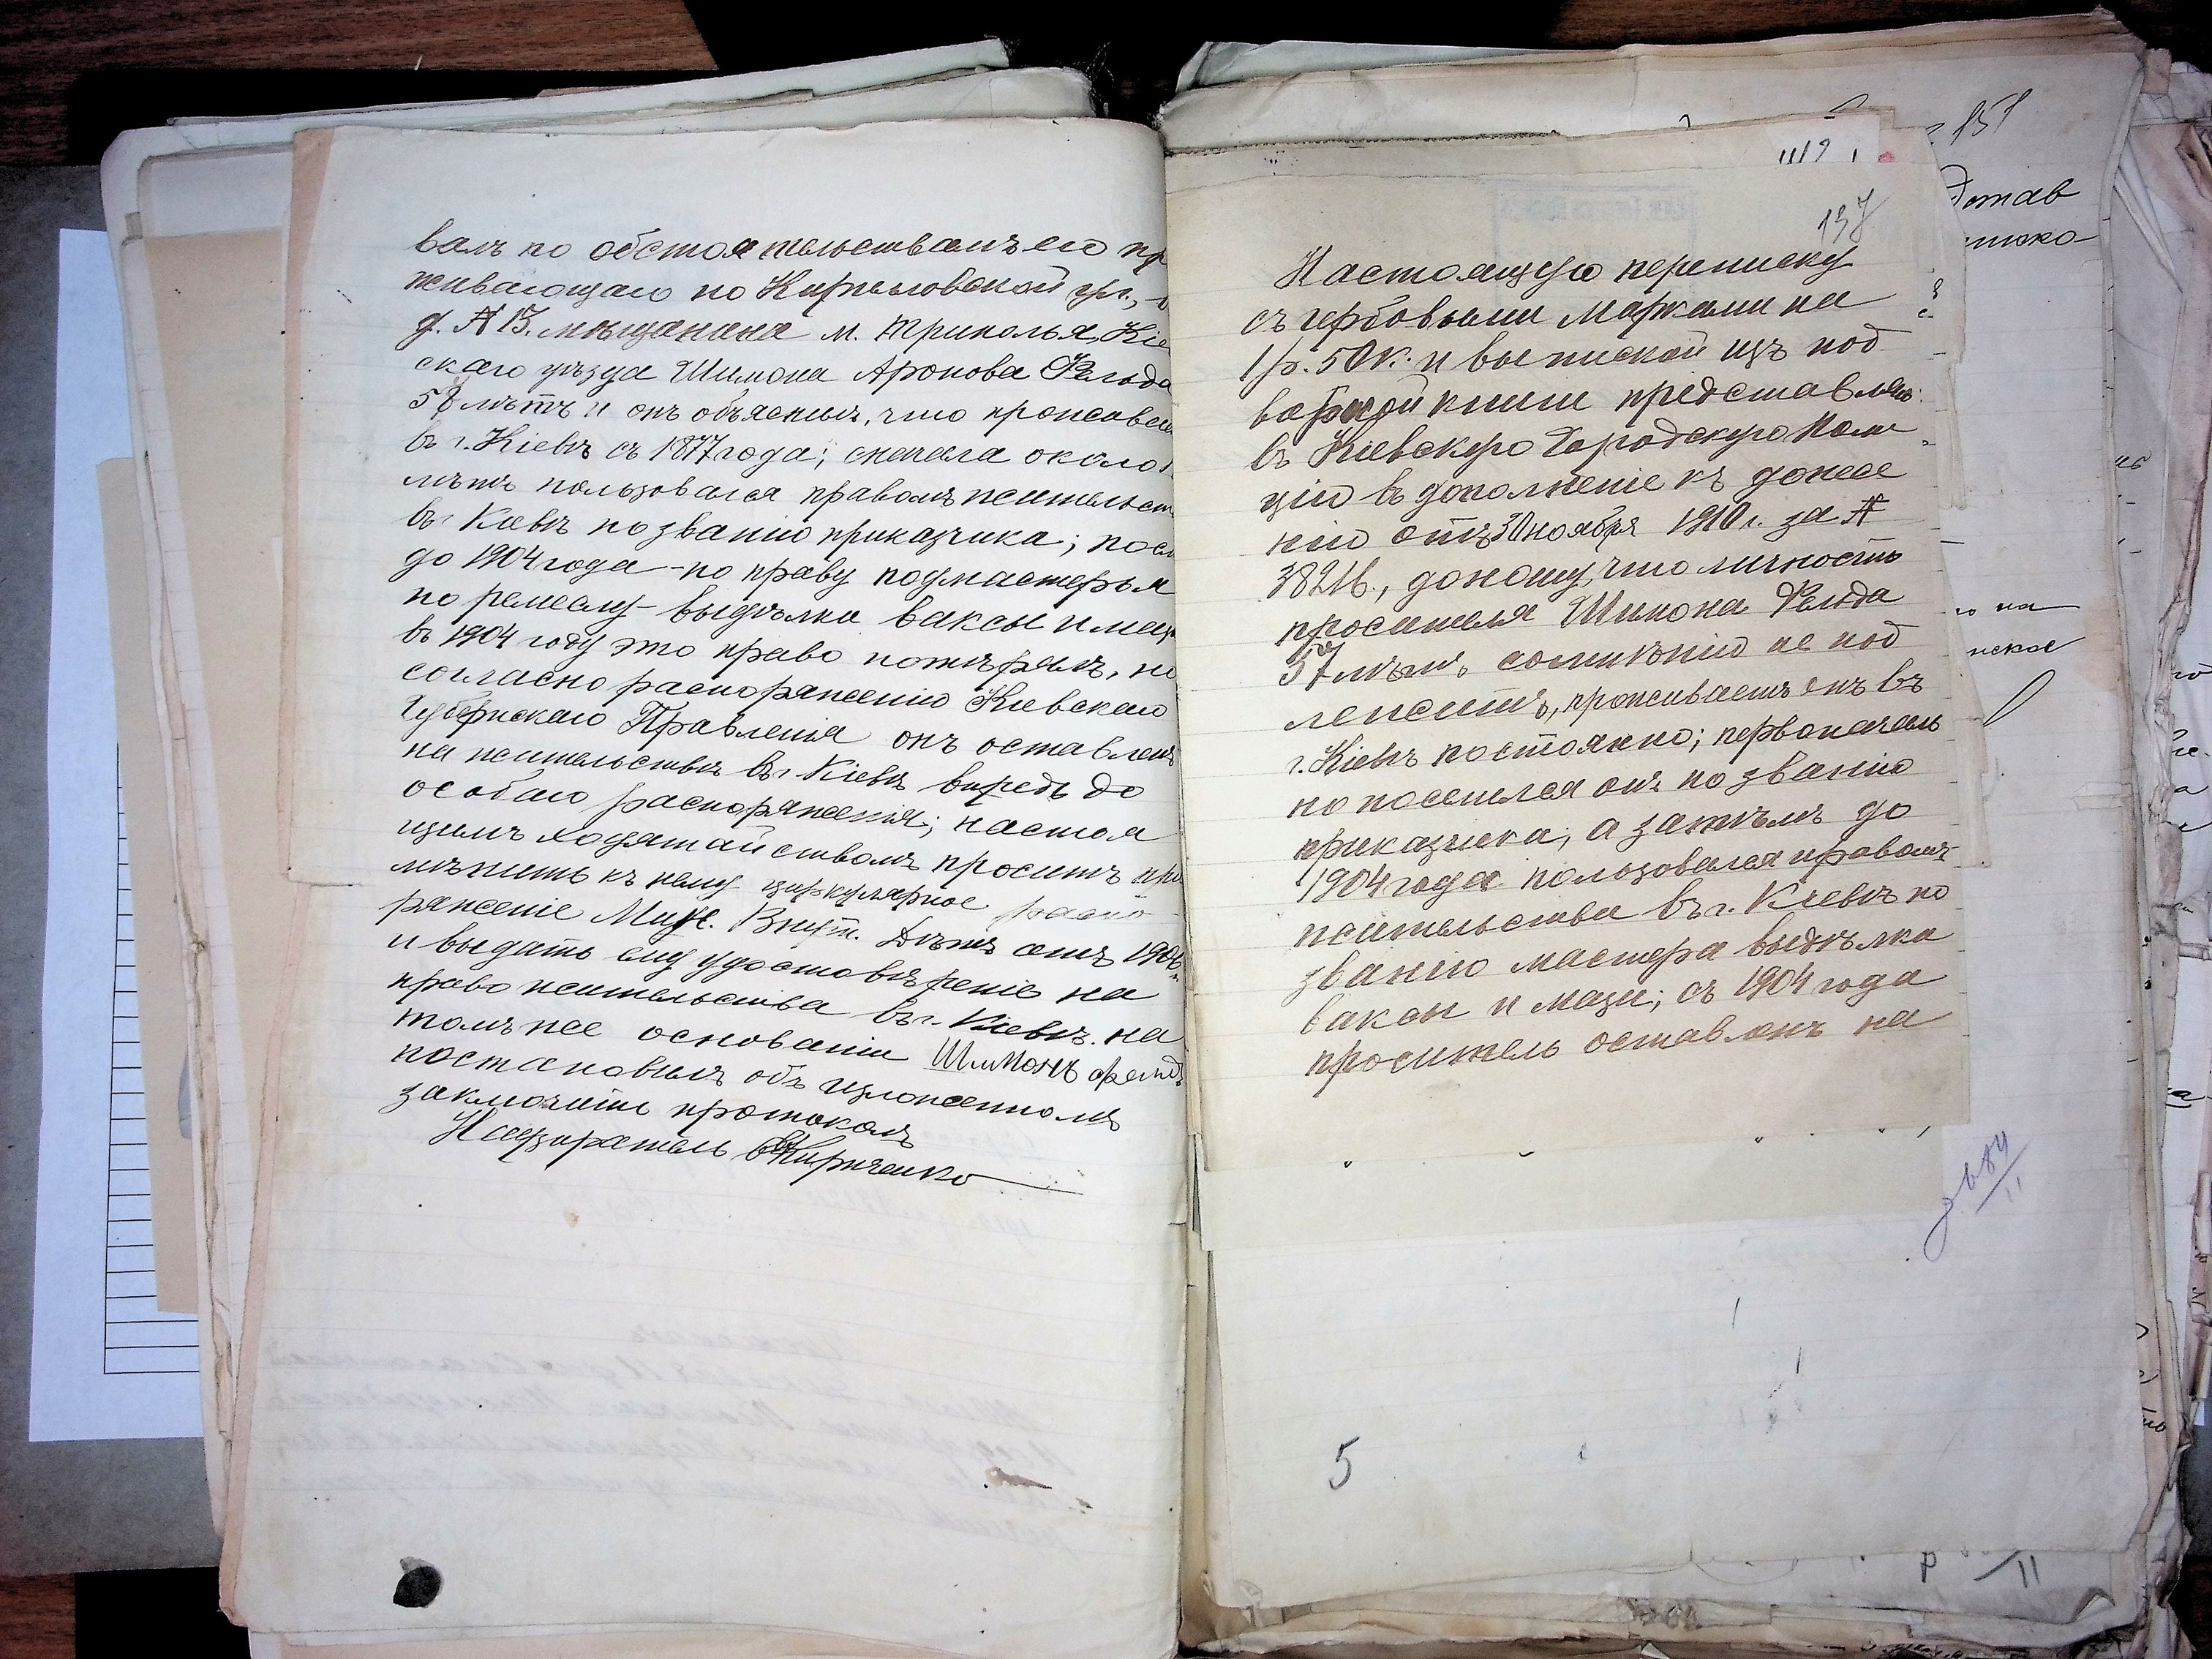 валъ по обстоятельствамъ его пр
живающаго по Кирилловской ул.,
д. № 13. мѣщанина м. Триполья, Кіе
скаго уѣзда Шимона Аронова Фельда
57 лѣтъ и онъ объяснилъ, что проживае
въ г. Кіевѣ съ 1877 года; сначала около
лѣтъ пользовался правомъ жительст
въ г. Кіевѣ по званію приказчика; посл
до 1904 года - по праву подмастерья
по ремеслу - выдѣлка ваксы и маз
въ 1904 году это право потѣрялъ, но
согласно распоряженію Кіевскаго
Губернскаго Правленія онъ оставленъ
на жительствѣ въ г. Кіевѣ впредь до
особаго распоряженія; настоя
щимъ ходятайствомъ проситъ при
мѣнить къ нему циркулярное распо
ряженіе Мин. Внут. Дѣлъ отъ 190
и выдать ему удостовѣреніе на
право жительства въ г. Кіевѣ. на
томъ же основаніи Шимонъ Фельдъ
постановилъ объ изложенномъ
заключить протоколъ
Надзиратель Кириченко
137
Настоящую переписку
съ гербовыми марками на
1 р. 50 к. и выпиской изъ под
ворной книги представляю
въ Кіевскую Городскую Поли
цію въ дополненіе къ донесе
нію отъ 30 ноября 1910 г. за №
38216., доношу, что личность
просителя Шимона Фельда
57 лѣтъ, сомнѣнію не под
лежитъ, проживаетъ онъ въ
г. Кіевѣ постоянно; первоначаль
но поселился онъ по званію
приказчика, а затѣмъ до
1904 года пользовался правомъ
жительства въ г. Кіевѣ по
званію мастера выдѣлка
ваксы и мази; съ 1904 года
проситель оставленъ на
151
5